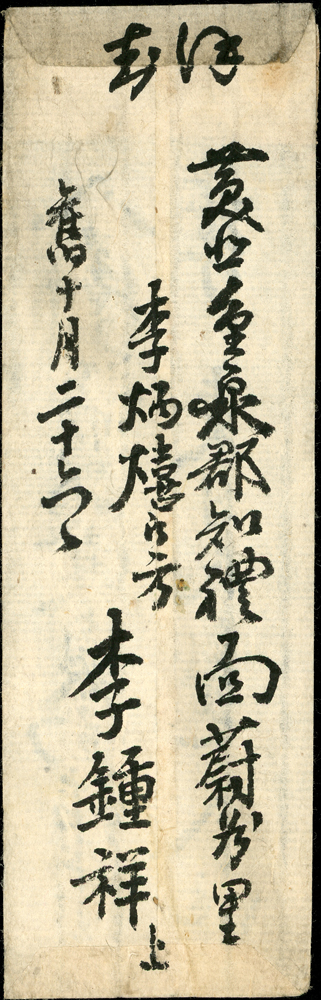 封
慶北金泉郡知禮面蔚谷里
李炳熺氏方
李鍾祥 上
舊十月二十六日